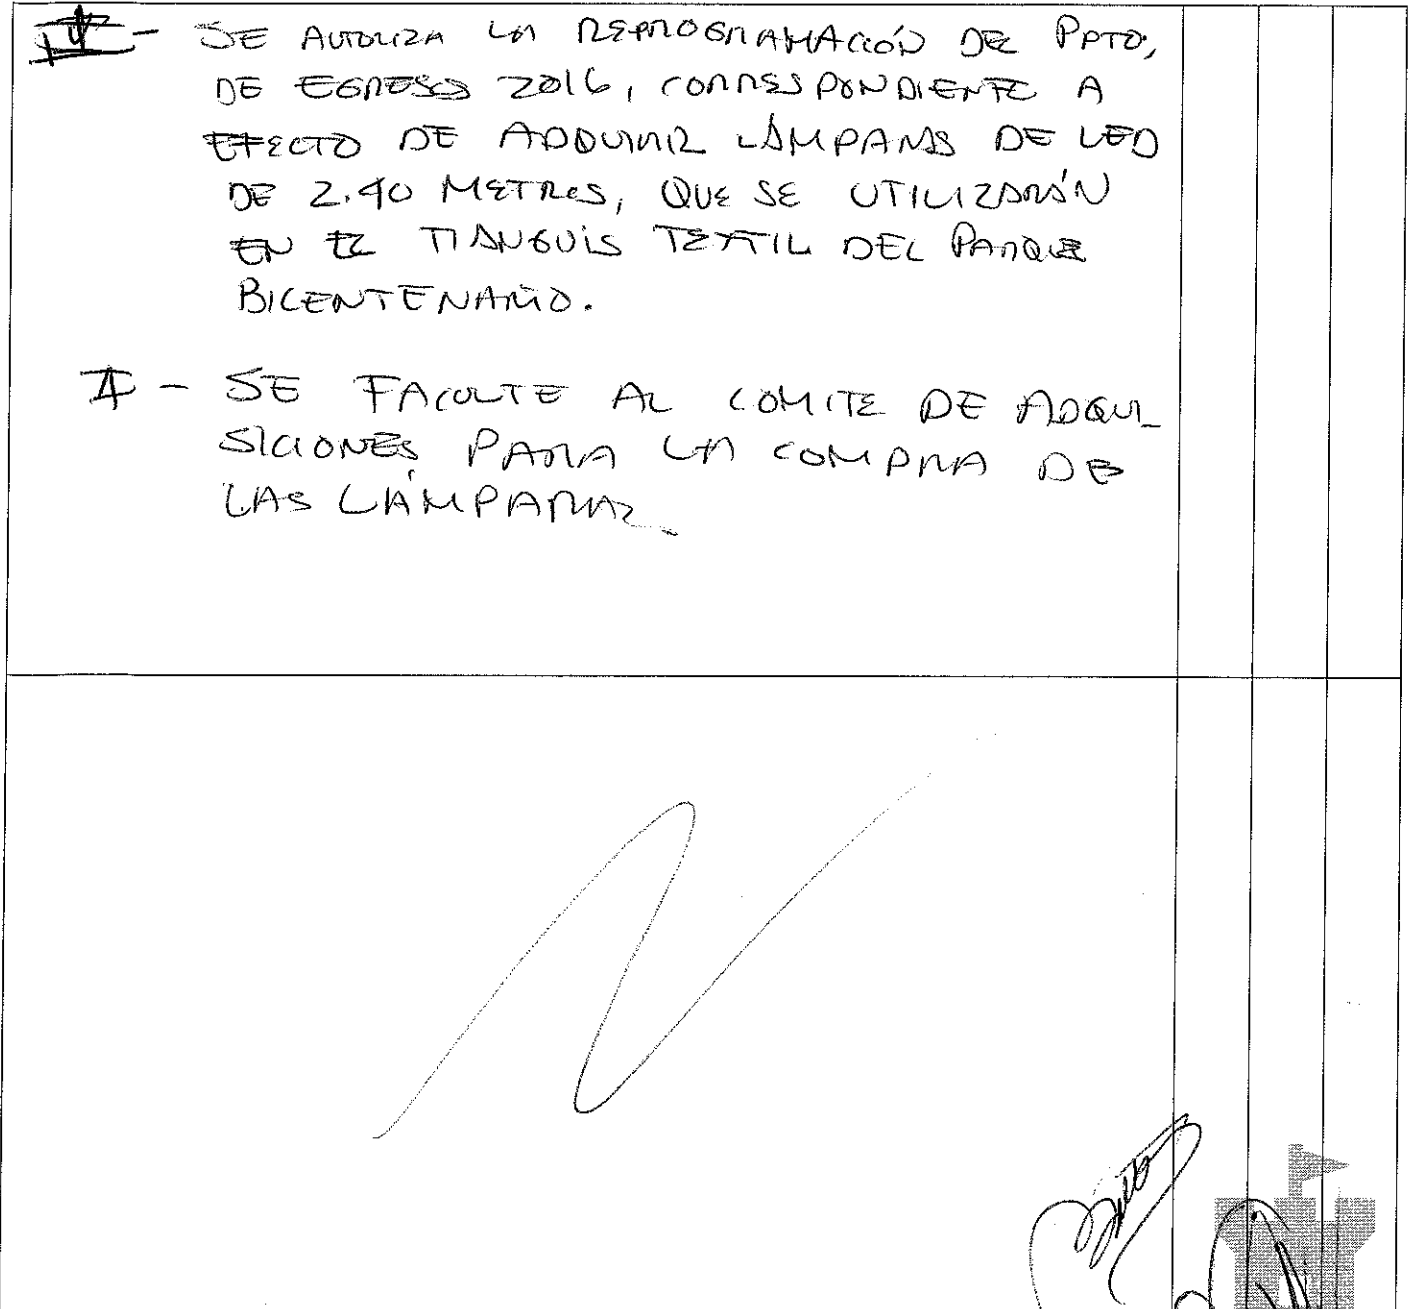 IV - SE AUTORIZA LA REPROGRAMACIÓN DEL PPTO,
DE EGRESOS 2016, CORRESPONDIENTE A
EFECTO DE ADQUIRIR LÁMPARAS DE LED
DE 2.40 METROS, QUE SE UTILIZARÁN
EN EL TIANGUIS TEXTIL DEL PARQUE
BICENTENARIO.
- SE FACULTE AL COMITE DE ADQUI
SICIONES PARA LA COMPRA DE
LAS LÁMPARAS